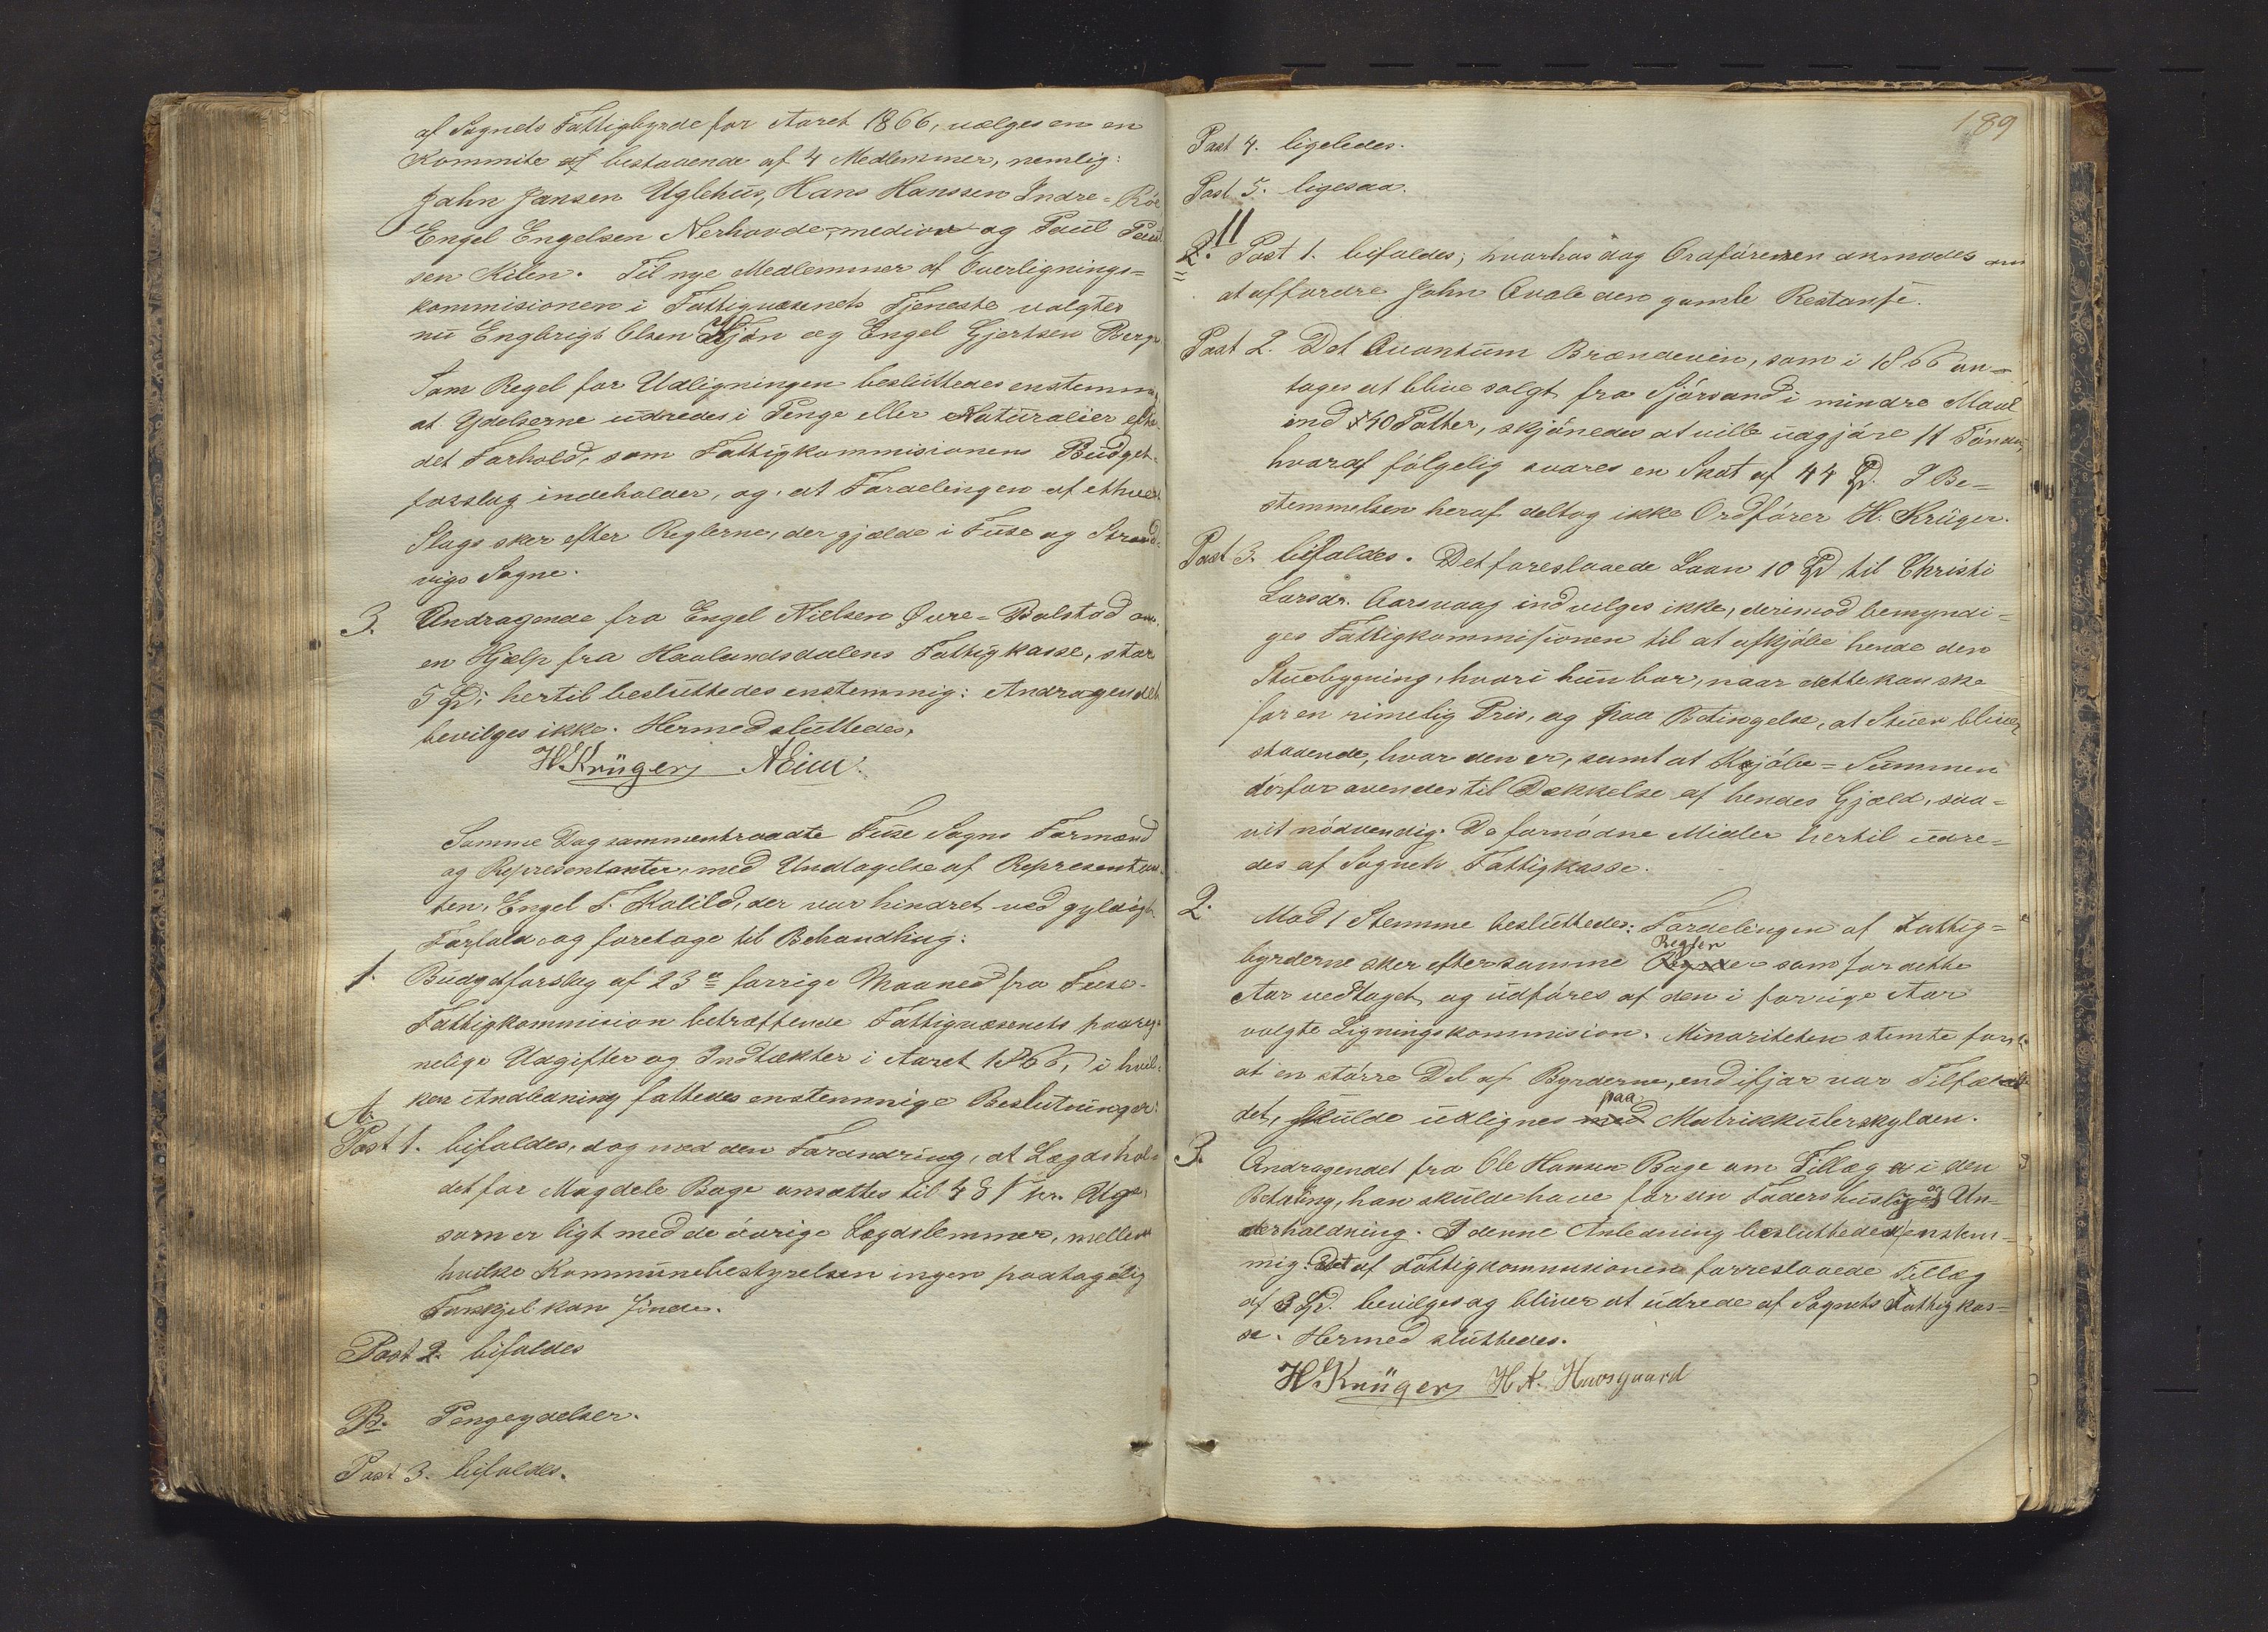 af Sognets Fattigbyrde for Aaret 1866, vælges en en
Kommite af bestaaende af 4 Medlemmer, nemlig:
John Jansen Uglehus, Hans Hanssen Indre-Röe
Engel Engelsen Nerhovde, og Paul Paul
sen Kilen. Til nye Medlemmer af Overlignings-
kommisionen i Fattigvæsenets Tjeneste valgtes
nu Engbrigt Olsen og Engel Gjertsen Berge
Som Regel for Udligningen besluttedes enstemmig,
at Ydelserne udredes i Penge eller Naturalier efter
det Forhold, som Fattigkommisionens Budget-
forslag indeholder, og, at Fordelingen af ethvert
Slags sker efter Reglerne, der gjælde i Fuse og Strand-
vigs Sogne.
3. Andragende fra Engel Nielsen Øvre-Bolstad om
en Hjælp fra Haalandsdalens Fattigkasse, stor
5 Spd; hertil besluttedes enstemmig: Andragendet
bevilges ikke. Hermed sluttedes.
H Krüger
Samme Dag sammentraadte Fuse Sogns Formænd
og Representanter, med Undtagelse af Representan-
ten, Engel T. Kolild, der var hindret ved gyldigt
Forfald, og foretoge til Behandling:
1. Budgetforslag af 23de forrige Maaned fra Fuse-
Fattigkommision betræffende Fattigvæsenets paareg-
nelige Udgifter og Indtækter i Aaret 1866, i hvil-
ken Andledning fattedes enstemmige Beslutninger:
A.
Post 1. bifaldes, dog med den Forandring, at Lægdshol-
det for Magdele Bage ansættes til 4 § pr. Uge,
som er ligt med de övrige Lægdslemmer, mellem
hvilke Kommunebestyrelsen ingen paatagelig
Forskjel kan finde.
Post 2. bifaldes
B. Pengeydelser.
Post 3. bifaldes.
189
Post 4. ligeledes.
Post 5. ligesaa.
11
2. Post 1. bifaldes; hvorhos dog Ordföreren anmodes om
at affordre John Qvale den gamle Restanse.
Post 2. Det Quantum Brændevin, som i 1866 an-
tages at blive solgt fra Sjörsand i mindre Maal
ind 40 Potter, skjönedes at ville udgjöre 11 Tönder,
hvoraf fölgelig svares en Skat af 44 Spd. I Be-
stemmelsen heraf deltog ikke Ordförer H. Krüger.
Post 3. bifaldes. Det foreslaaede Laan 10 Spd til Christi
Larsdr. Aarsvaag indvilges ikke, derimod bemyndi-
ges Fattigkommisionen til at afkjöbe hende den
Stuebygning, hvori hun bor, naar dette kan ske
for en rimelig Pris, og paa Betingelse, at Stuen bliver
staaende, hvor den er, samt at Kjöbe-Summen
derfor anvendes til Dækkelse af hendes Gjæld, saa-
vit nödvendig. De fornödne Midler hertil udre-
des af Sognets Fattigkasse.
2. Mod 1 Stemme besluttedes: Fordelingen af Fattig-
byrderne sker efter samme Regler som for dette
Aar vedtaget, og udföres af den i forrige Aar
valgte Ligningskommision. Minoriteten stemte for,
at en större Del af Byrderne, end ifjor var Tilfæl-
det, skulde udlignes med paa Matrikkulerskylden.
3. Andragendet fra Ole Hansen Bage om Tillæg i den
Betaling, han skulde have for sin Faders husly og Un-
derholdning. I denne Anledning besluttedes enstem-
mig: Det af Fattigkommisionen forreslaaede Tillæg
af 3 Spd. bevilges og bliver at udrede af Sognets Fattigkas-
se. Hermed sluttedes.
H Krüger H A. Havsgaard